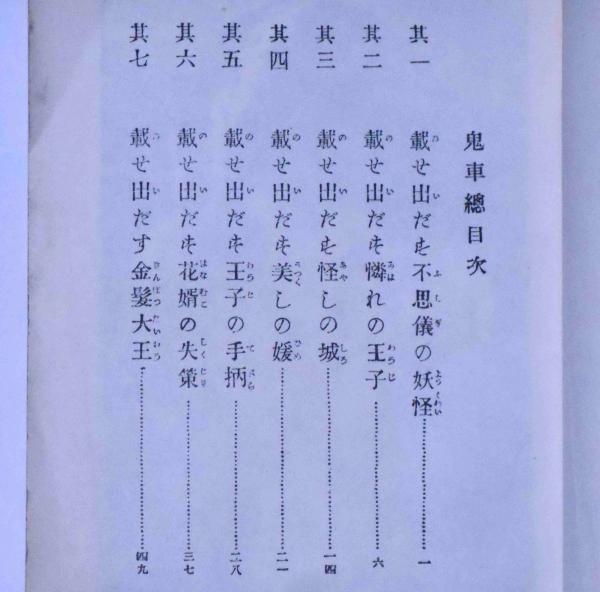 鬼車總目次
其一 載せ出だす不思儀の妖怪 一
其二 載せ出だす憐れの王子 六
其三 載せ出だす怪しの城 一四
其四 載せ出だす美しの媛 二一
其五 載せ出だす王子の手柄 二八
其六 載せ出だす花婿の失策 三七
其七 載せ出だす金髮大王 四九